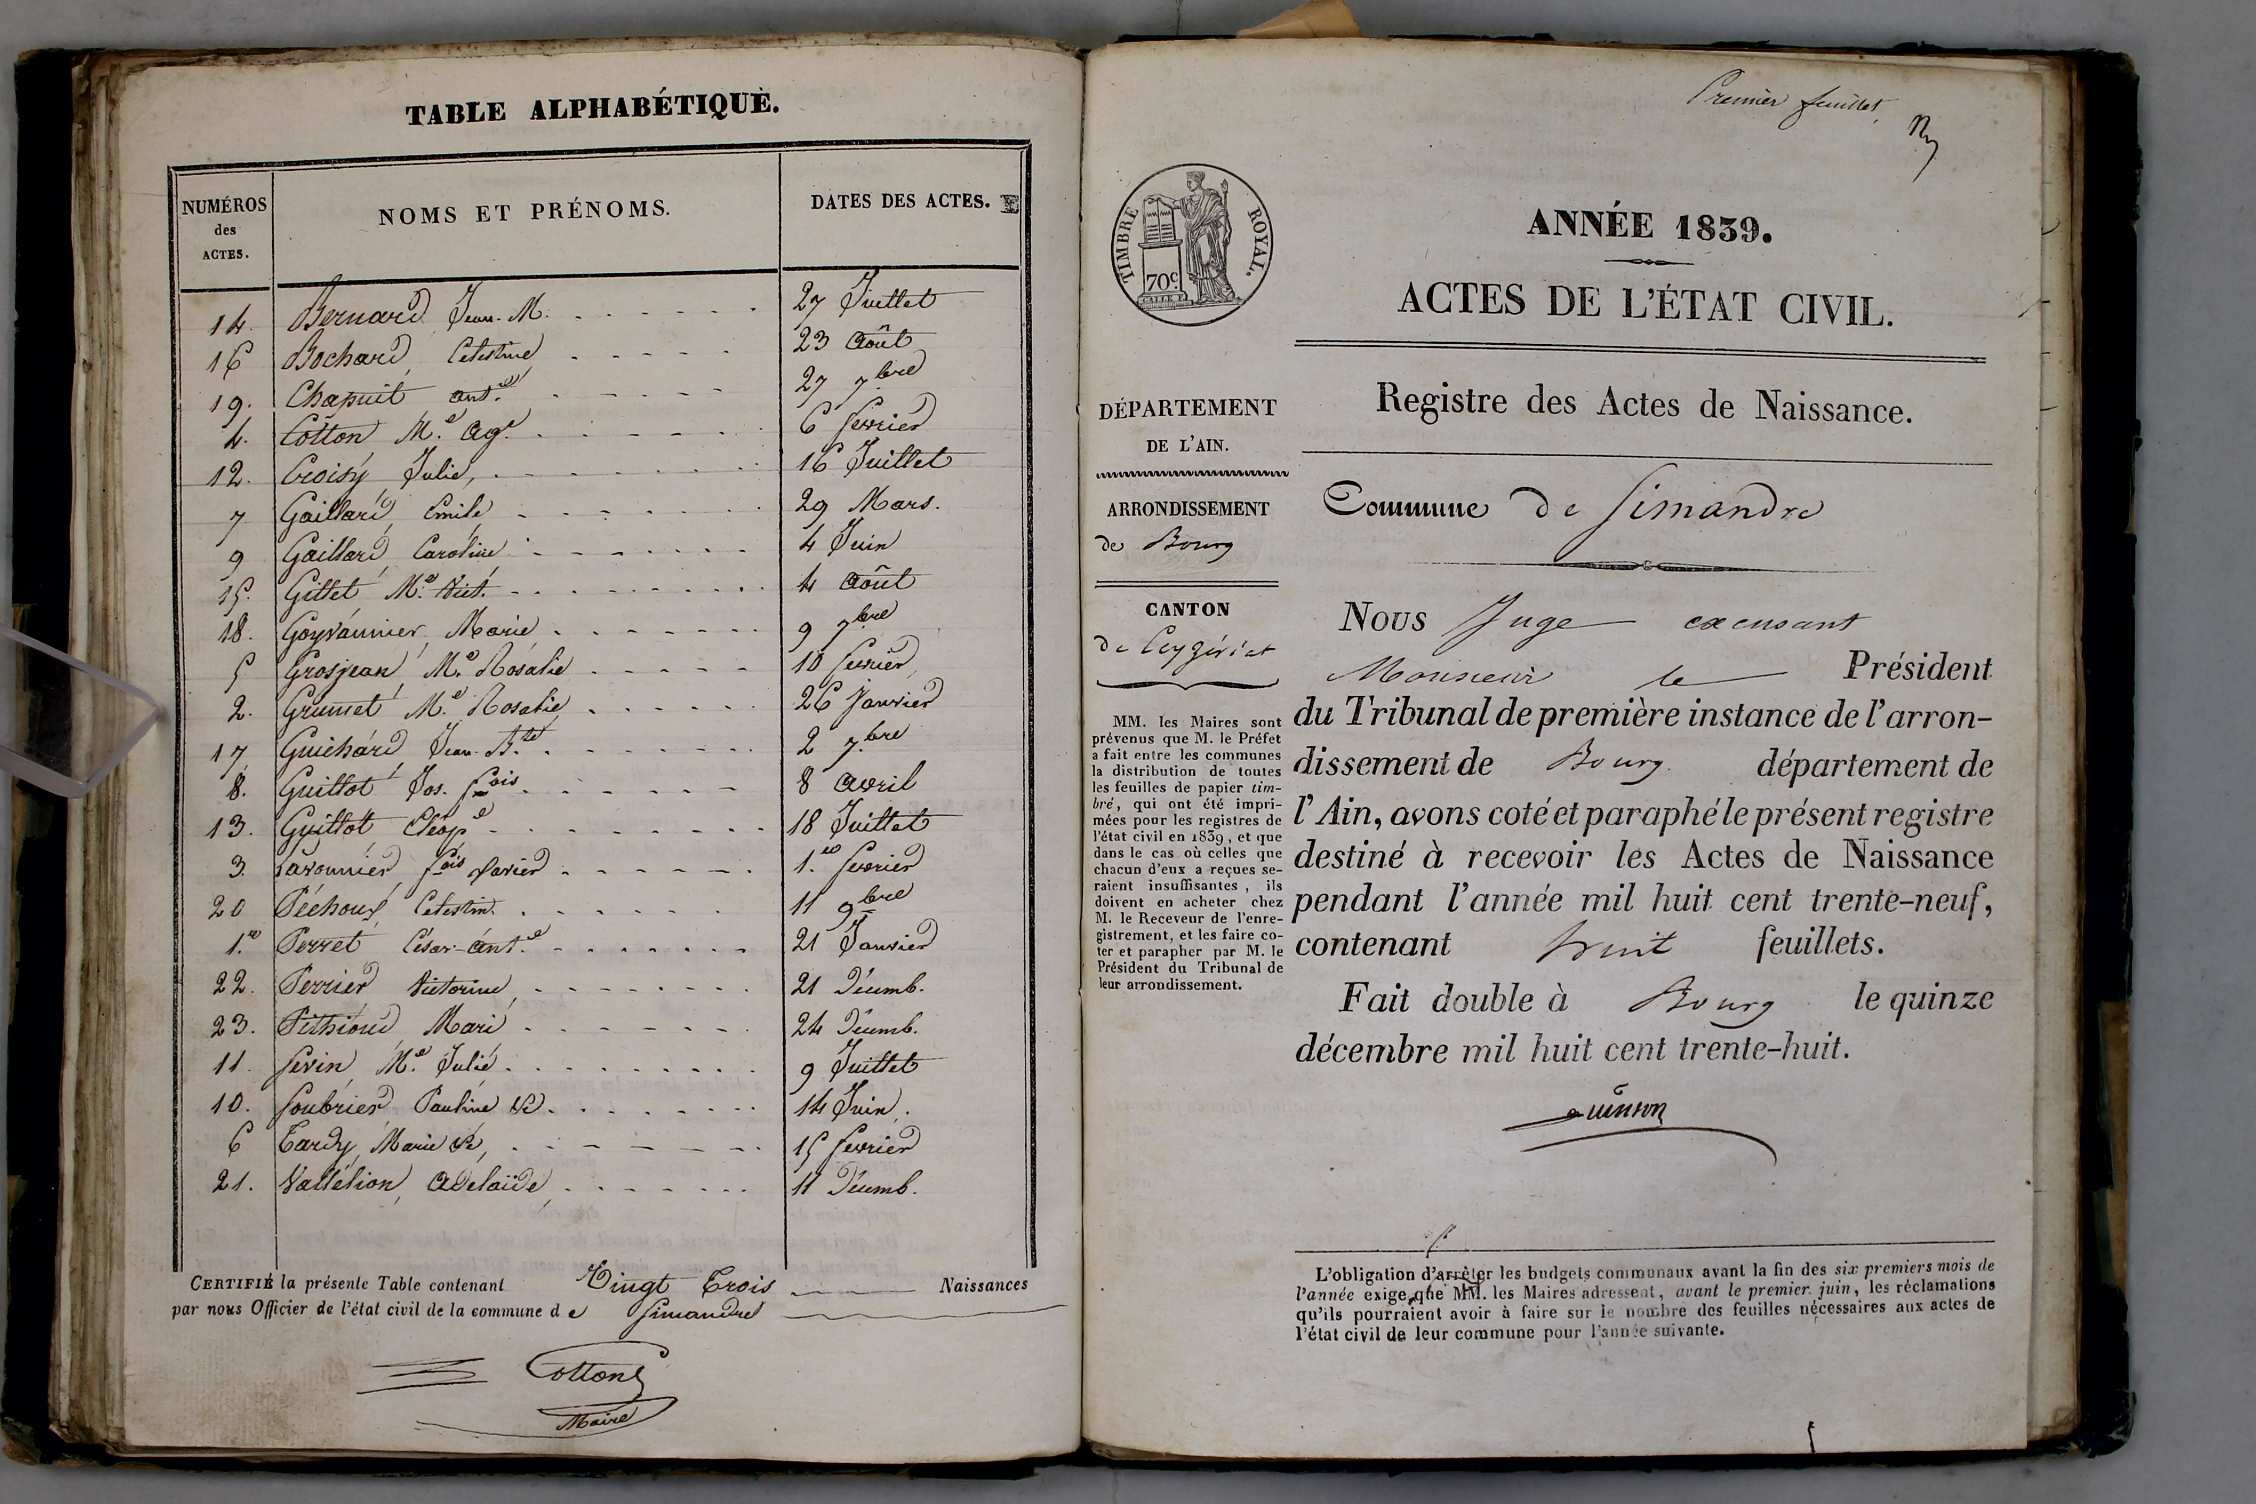 TABLE ALPHABÉTIQUE.
NUMÉROS des ACTES.
NOMS ET PRÉNOMS.
DATES DES ACTES.
14. Bernard Jean-M. 27 Juillet
16 Bochard, Celestine 23 Août
19. Chapuit ant.e 27 7.bre
4. Cotton M.e Ag.e 6 fevrier
12. Croisy Julie, 16 Juillet
7 Gaillard, Emile 29 Mars.
9 Gaillard, Caroline 4 Juin
15. Gillet M.e Vict. 4 Août
18. Goyvannier, Marie 9 7.bre
5 Grosjean M.e Rosalie 10 fevrier,
2. Grumet M.e Rosalie 26 Janvier
17 Guichard Jean-B.te 2 7.bre
8. Guillot Jos. fois 8 Avril
13. Guillot Cléop.e 18 Juillet
3. Lavounier fois Xavier 1.er fevrier
20 Péchoux Celestin. 11 9bre
1.er Perret César-Ant.e 21 Janvier
22. Perrier Victorine, 21 Décemb.
23. Pithioud Marie 24 Décemb.
11. Sevin, M.e Julie 9 Juillet
10. Soubrier Pauline &c. 14 Juin.
6 Tardy, Marie &c, 15 fevrier
21. Vallélion, Adelaïde, 11 Décemb.
CERTIFIÉ la présente Table contenant Vingt Trois Naissances
par nous Officier de l'état civil de la commune de Simandre
Cotton
Maire
Premier feuillet,
TIMBRE ROYAL.
70c.
ANNÉE 1839.
ACTES DE L'ÉTAT CIVIL.
Registre des Actes de Naissance.
DÉPARTEMENT
DE L'AIN.
ARRONDISSEMENT
de Bourg
CANTON
de Ceyzériat
MM. les Maires sont
prévenus que M. le Préfet
a fait entre les communes
la distribution de toutes
les feuilles de papier tim-
bré, qui ont été impri-
mées pour les registres de
l'état civil en 1839, et que
dans le cas où celles que
chacun d'eux a reçues se-
raient insuffisantes, ils
doivent en acheter chez
M. le Receveur de l'enre-
gistrement, et les faire co-
ter et parapher par M. le
Président du Tribunal de
leur arrondissement.
Commune de Simandre
Nous Juge excusant
Monsieur le Président
du Tribunal de première instance de l'arron-
dissement de Bourg. département de
l'Ain, avons coté et paraphé le présent registre
destiné à recevoir les Actes de Naissance
pendant l'année mil huit cent trente-neuf,
contenant huit feuillets.
Fait double à Bourg le quinze
décembre mil huit cent trente-huit.
L'obligation d'arrêter les budgets communaux avant la fin des six premiers mois de
l'année exige que MM. les Maires adressent, avant le premier juin, les réclamations
qu'ils pourraient avoir à faire sur le nombre des feuilles nécessaires aux actes de
l'état civil de leur commune pour l'année suivante.